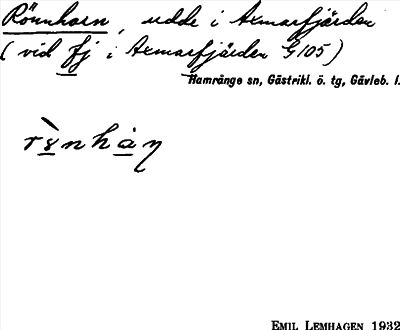 Rönnharn, udde i Axmarfjärden
(vid fj i Axmarfjärden G 105)
Hamrånge sn, Gästrikl. ö. tg, Gävleb. l.
EMIL LEMHAGEN 1932